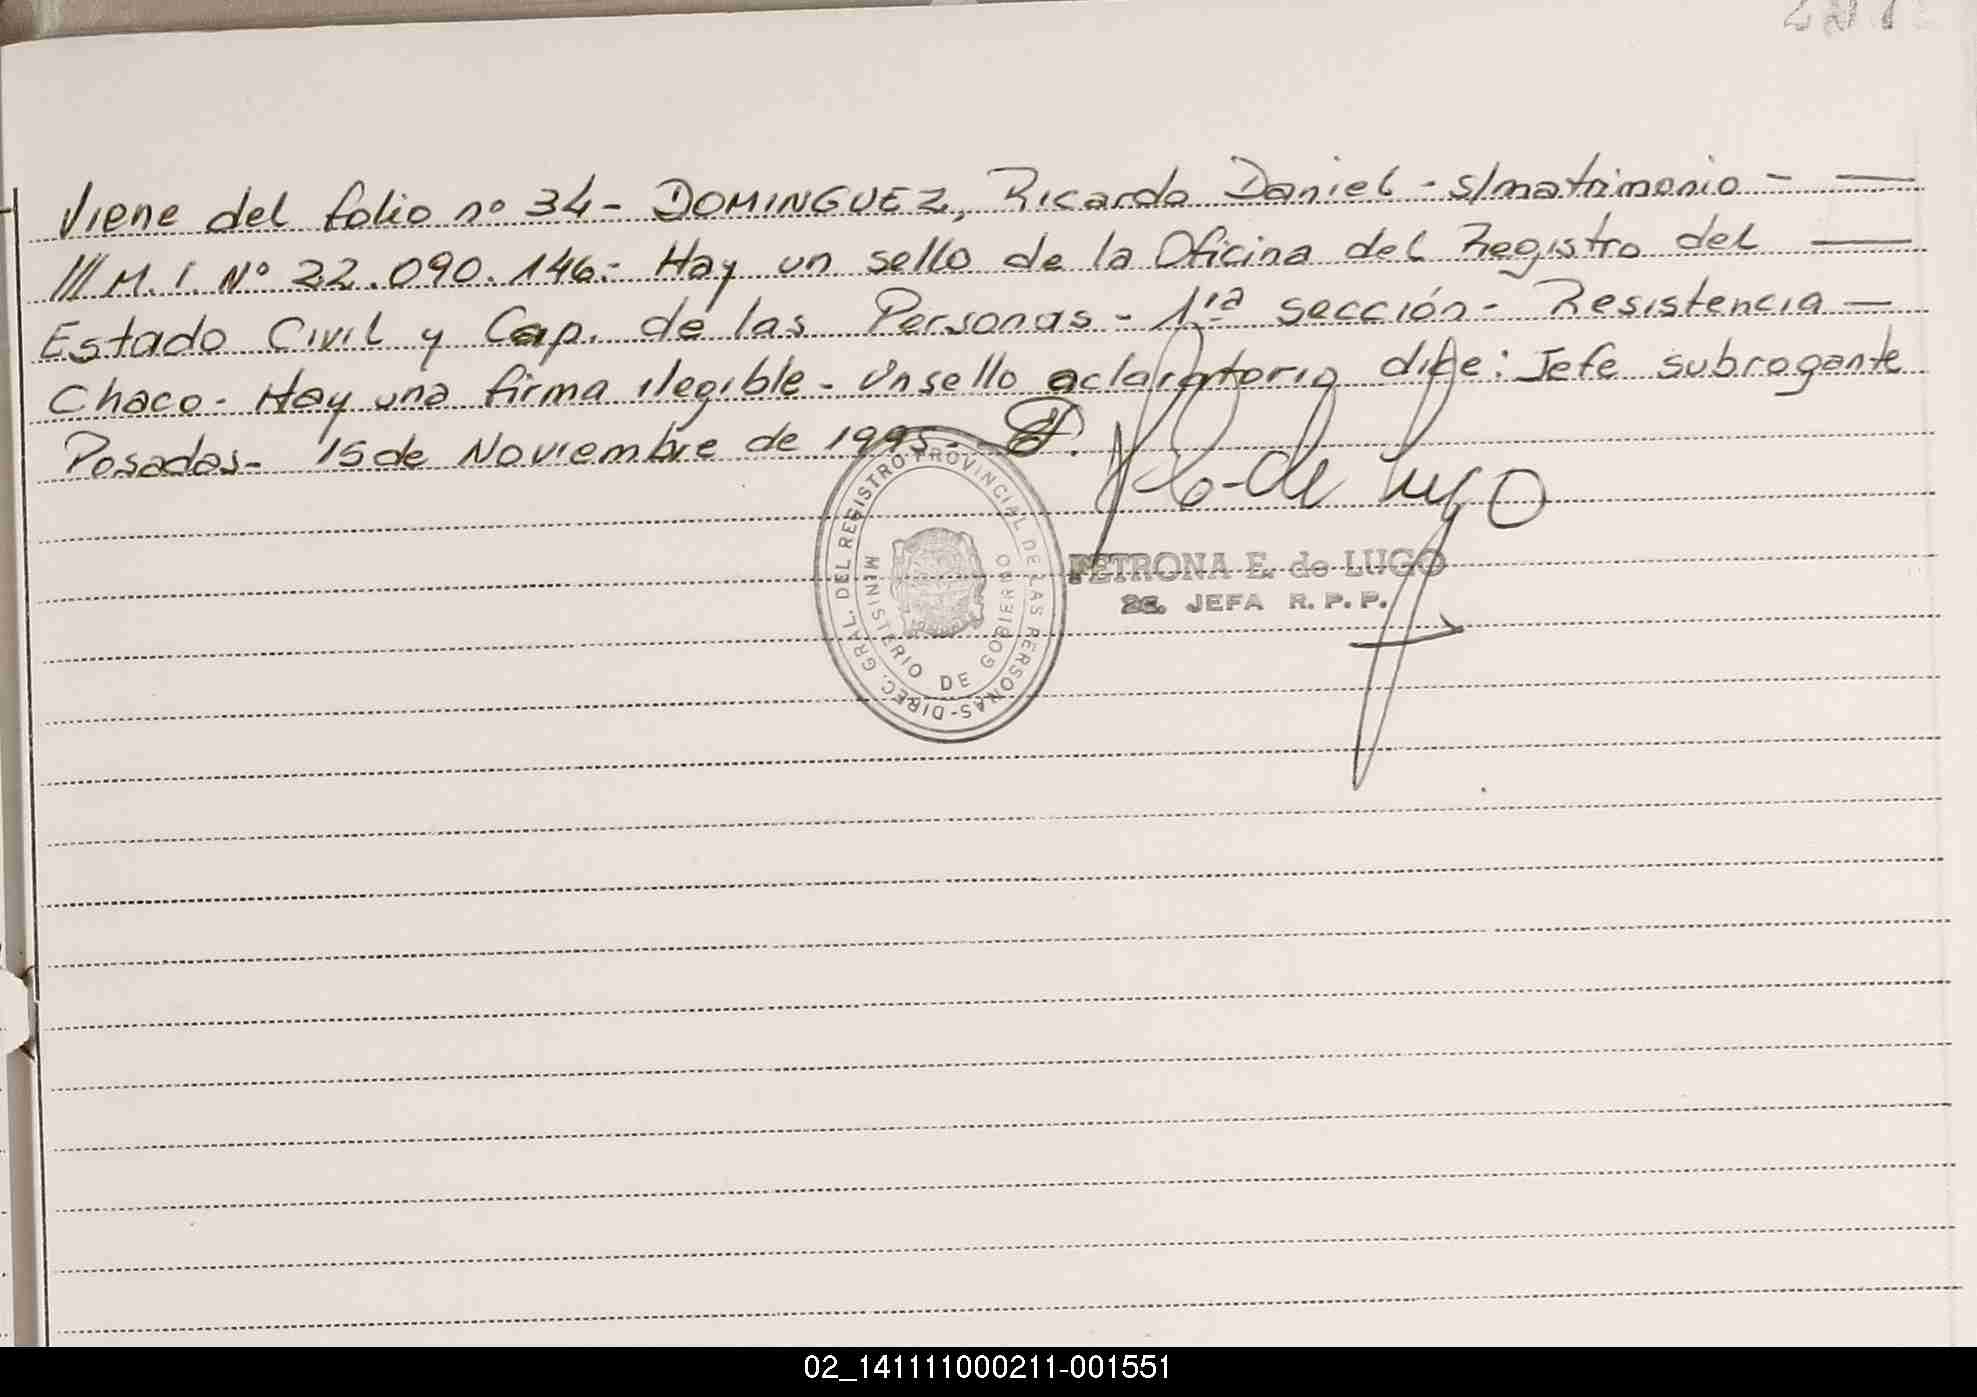 Viene del folio nº 34 - DOMINGUEZ, Ricardo Daniel - s/matrimonio - —
/// M. I. Nº 22.090.146.- Hay un sello de la Oficina del Registro del —
Estado Civil y Cap. de las Personas - 1ra sección - Resistencia —
Chaco - Hay una firma ilegible - Un sello aclaratorio dice: Jefe subrogante
Posadas - 15 de Noviembre de 1995.-
de Lugo
DIREC. GRAL. DEL REGISTRO PROVINCIAL DE LAS PERSONAS -
MINISTERIO DE GOBIERNO
PETRONA E. de LUGO
JEFA R. P. P.
02_141111000211-001551